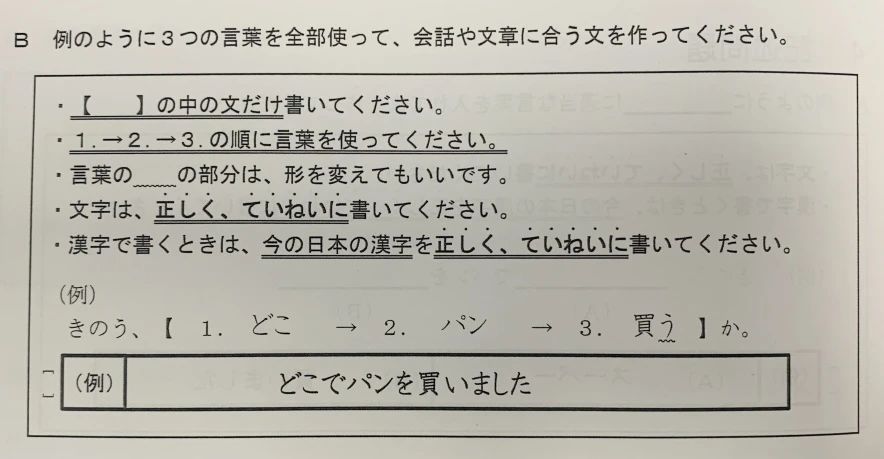 B 例のように３つの言葉を全部使って、会話や文章に合う文を作ってください。
・【　　】の中の文だけ書いてください。
・１.→２.→３.の順に言葉を使ってください。
・言葉の＿＿の部分は、形を変えてもいいです。
・文字は、正しく、ていねいに書いてください。
・漢字で書くときは、今の日本の漢字を正しく、ていねいに書いてください。
（例）
きのう、【　１.　どこ　→　２.　パン　→　３.　買う　】か。
（例）　どこでパンを買いました